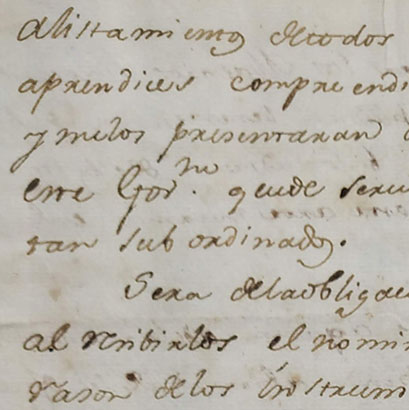 alistamiento de todos
aprendices comprendi
y melos presentaran
este Gov.no quede seru
tan subordinados.
Sera de la obligac
al recibirlos el nomi
razon de los instrum